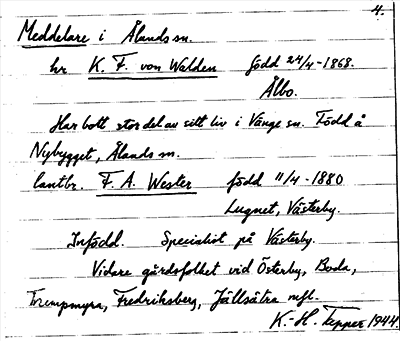 4.
Meddelare i Ålands sn.
hr. K. F. von Walden född 24/4-1868.
Ålbo.
Har bott stor del av sitt liv i Vänge sn. Född å
Nybygget, Ålands sn.
lantbr. F. A. Wester född 11/4-1880
Lugnet, Västerby.
Infödd. Specialist på Västerby.
Vidare gårdsfolket vid Österby, Boda,
Trumpmyra, Fredriksberg, Jällsätra mfl.
K.-H. Tepper 1944.